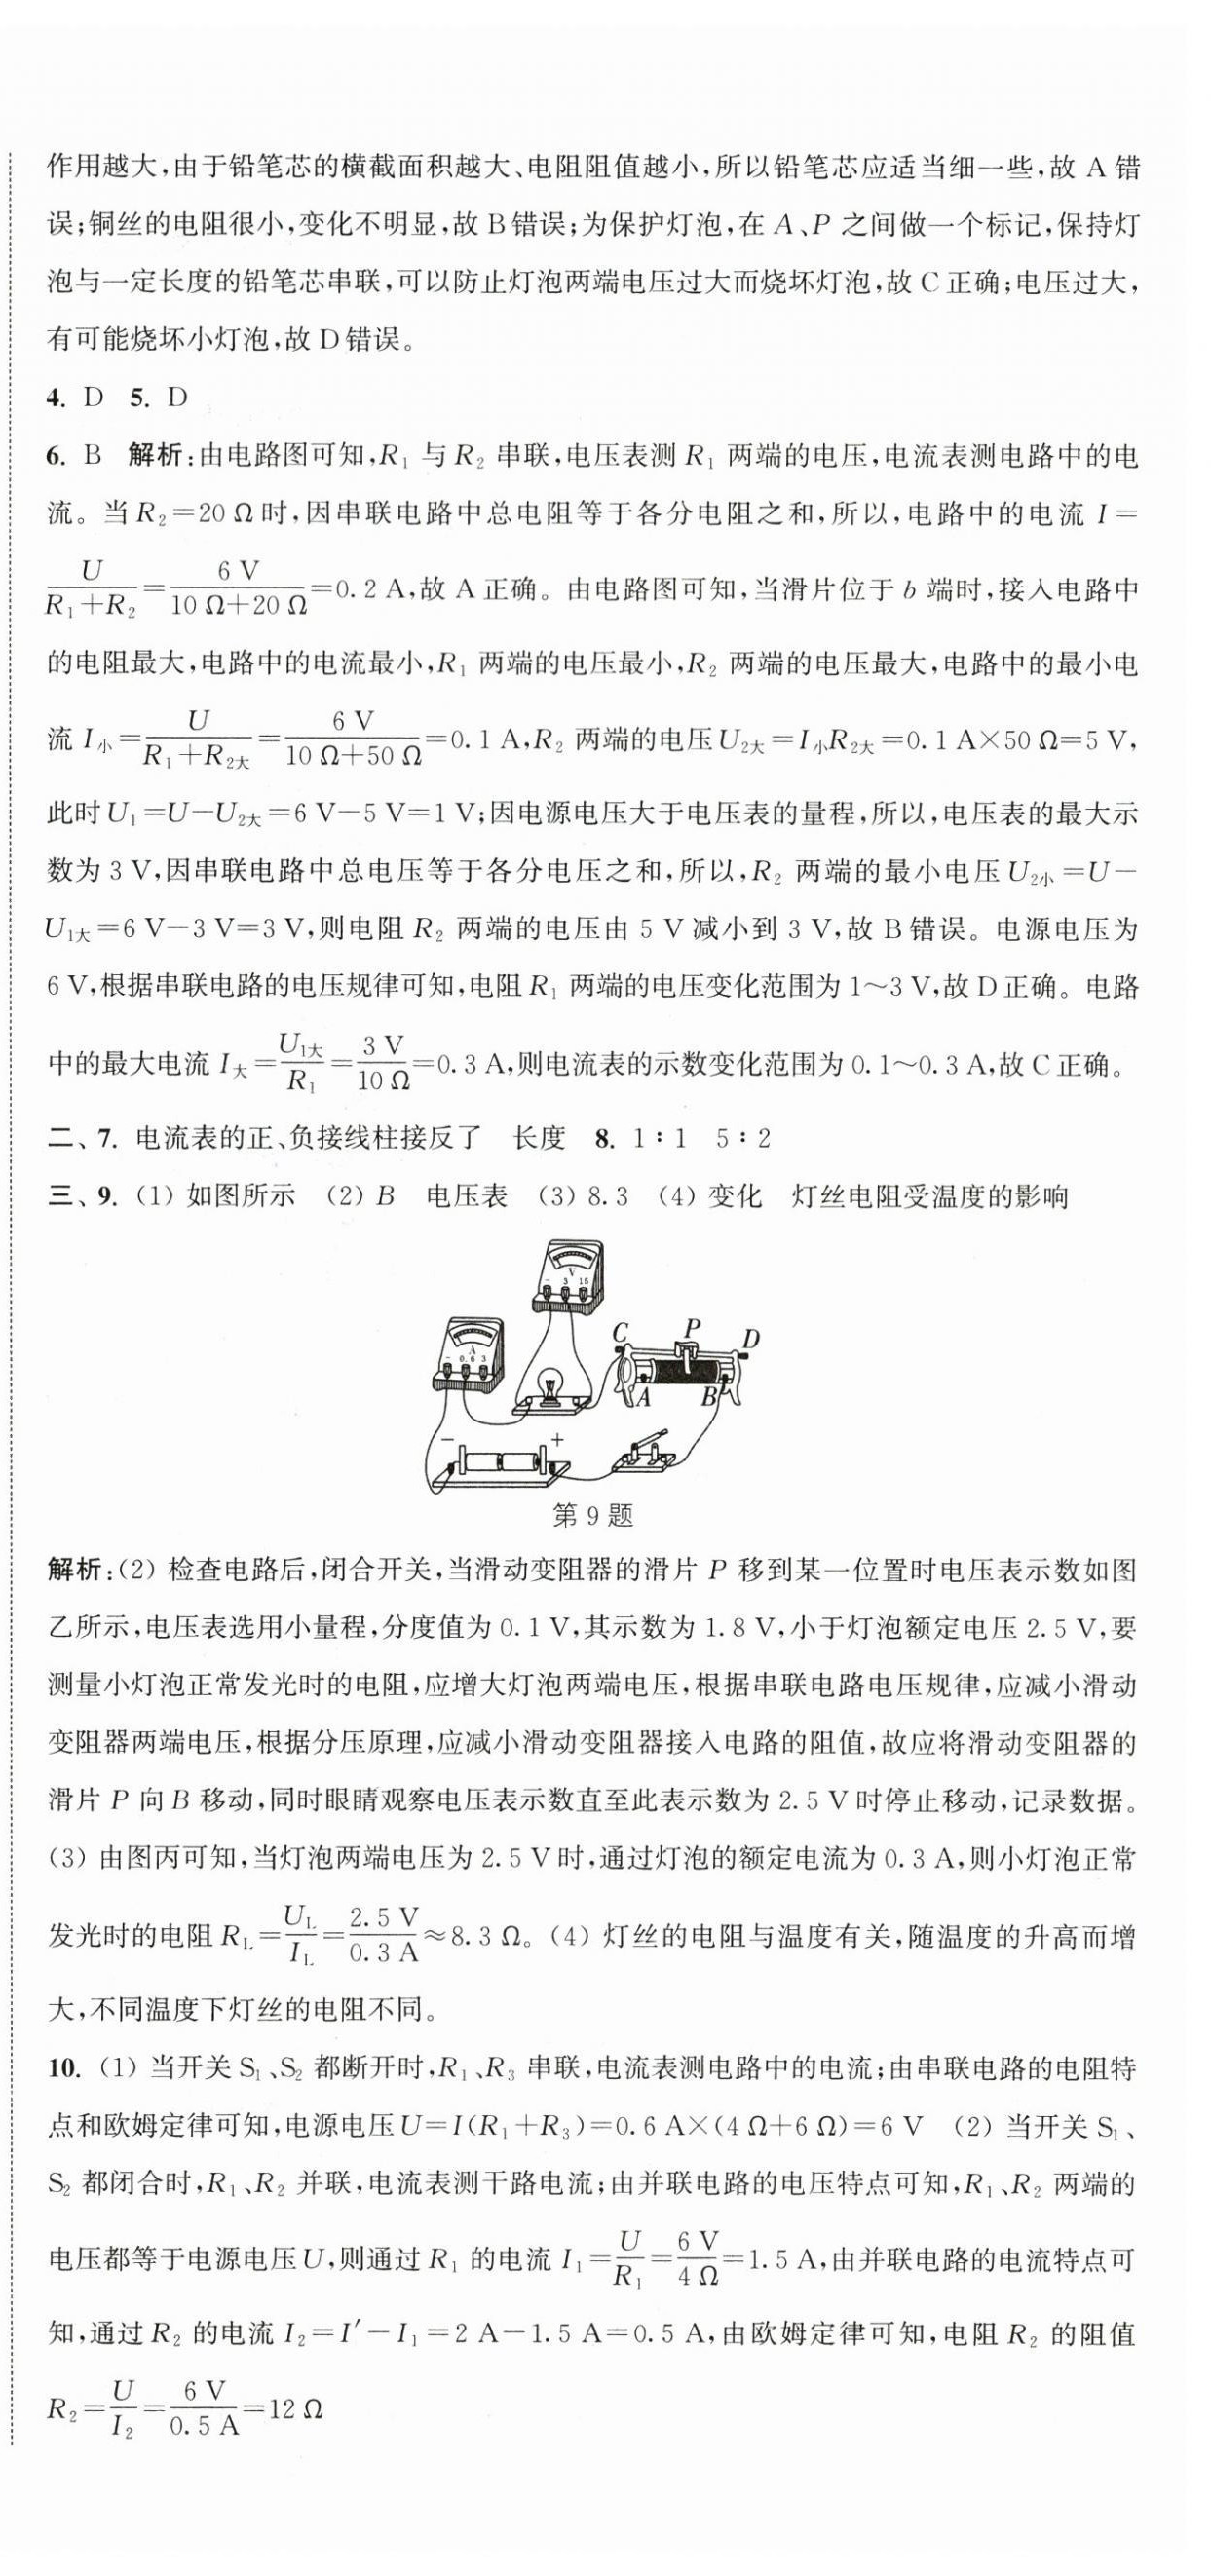 作用越大,由于铅笔芯的横截面积越大、电阻阻值越小,所以铅笔芯应适当细一些,故 A 错
误;铜丝的电阻很小,变化不明显,故 B 错误;为保护灯泡,在 A、P 之间做一个标记,保持灯
泡与一定长度的铅笔芯串联,可以防止灯泡两端电压过大而烧坏灯泡,故 C 正确;电压过大,
有可能烧坏小灯泡,故 D 错误。
4. D 5. D
6. B 解析:由电路图可知,R₁ 与 R₂ 串联,电压表测 R₁ 两端的电压,电流表测电路中的电
流。当 R₂=20 Ω 时,因串联电路中总电阻等于各分电阻之和,所以,电路中的电流 I=
U/(R₁+R₂)=6 V/(10 Ω+20 Ω)=0.2 A,故 A 正确。由电路图可知,当滑片位于 b 端时,接入电路中
的电阻最大,电路中的电流最小,R₁ 两端的电压最小,R₂ 两端的电压最大,电路中的最小电
流 I小=U/(R₁+R₂大)=6 V/(10 Ω+50 Ω)=0.1 A,R₂ 两端的电压 U₂大=I小R₂大=0.1 A×50 Ω=5 V,
此时 U₁=U-U₂大=6 V-5 V=1 V;因电源电压大于电压表的量程,所以,电压表的最大示
数为 3 V,因串联电路中总电压等于各分电压之和,所以,R₂ 两端的最小电压 U₂小=U-
U₁大=6 V-3 V=3 V,则电阻 R₂ 两端的电压由 5 V 减小到 3 V,故 B 错误。电源电压为
6 V,根据串联电路的电压规律可知,电阻 R₁ 两端的电压变化范围为 1~3 V,故 D 正确。电路
中的最大电流 I大=U₁大/R₁=3 V/10 Ω=0.3 A,则电流表的示数变化范围为 0.1~0.3 A,故 C 正确。
二、7. 电流表的正、负接线柱接反了 长度 8. 1∶1 5∶2
三、9. (1) 如图所示 (2) B 电压表 (3) 8.3 (4) 变化 灯丝电阻受温度的影响
V
- 3 15
A
- 0.6 3
C P D
A B
- +
第 9 题
解析:(2) 检查电路后,闭合开关,当滑动变阻器的滑片 P 移到某一位置时电压表示数如图
乙所示,电压表选用小量程,分度值为 0.1 V,其示数为 1.8 V,小于灯泡额定电压 2.5 V,要
测量小灯泡正常发光时的电阻,应增大灯泡两端电压,根据串联电路电压规律,应减小滑动
变阻器两端电压,根据分压原理,应减小滑动变阻器接入电路的阻值,故应将滑动变阻器的
滑片 P 向 B 移动,同时眼睛观察电压表示数直至此表示数为 2.5 V 时停止移动,记录数据。
(3) 由图丙可知,当灯泡两端电压为 2.5 V 时,通过灯泡的额定电流为 0.3 A,则小灯泡正常
发光时的电阻 R_L=U_L/I_L=2.5 V/0.3 A≈8.3 Ω。(4) 灯丝的电阻与温度有关,随温度的升高而增
大,不同温度下灯丝的电阻不同。
10. (1) 当开关 S₁、S₂ 都断开时,R₁、R₃ 串联,电流表测电路中的电流;由串联电路的电阻特
点和欧姆定律可知,电源电压 U=I(R₁+R₃)=0.6 A×(4 Ω+6 Ω)=6 V (2) 当开关 S₁、
S₂ 都闭合时,R₁、R₂ 并联,电流表测干路电流;由并联电路的电压特点可知,R₁、R₂ 两端的
电压都等于电源电压 U,则通过 R₁ 的电流 I₁=U/R₁=6 V/4 Ω=1.5 A,由并联电路的电流特点可
知,通过 R₂ 的电流 I₂=I′-I₁=2 A-1.5 A=0.5 A,由欧姆定律可知,电阻 R₂ 的阻值
R₂=U/I₂=6 V/0.5 A=12 Ω